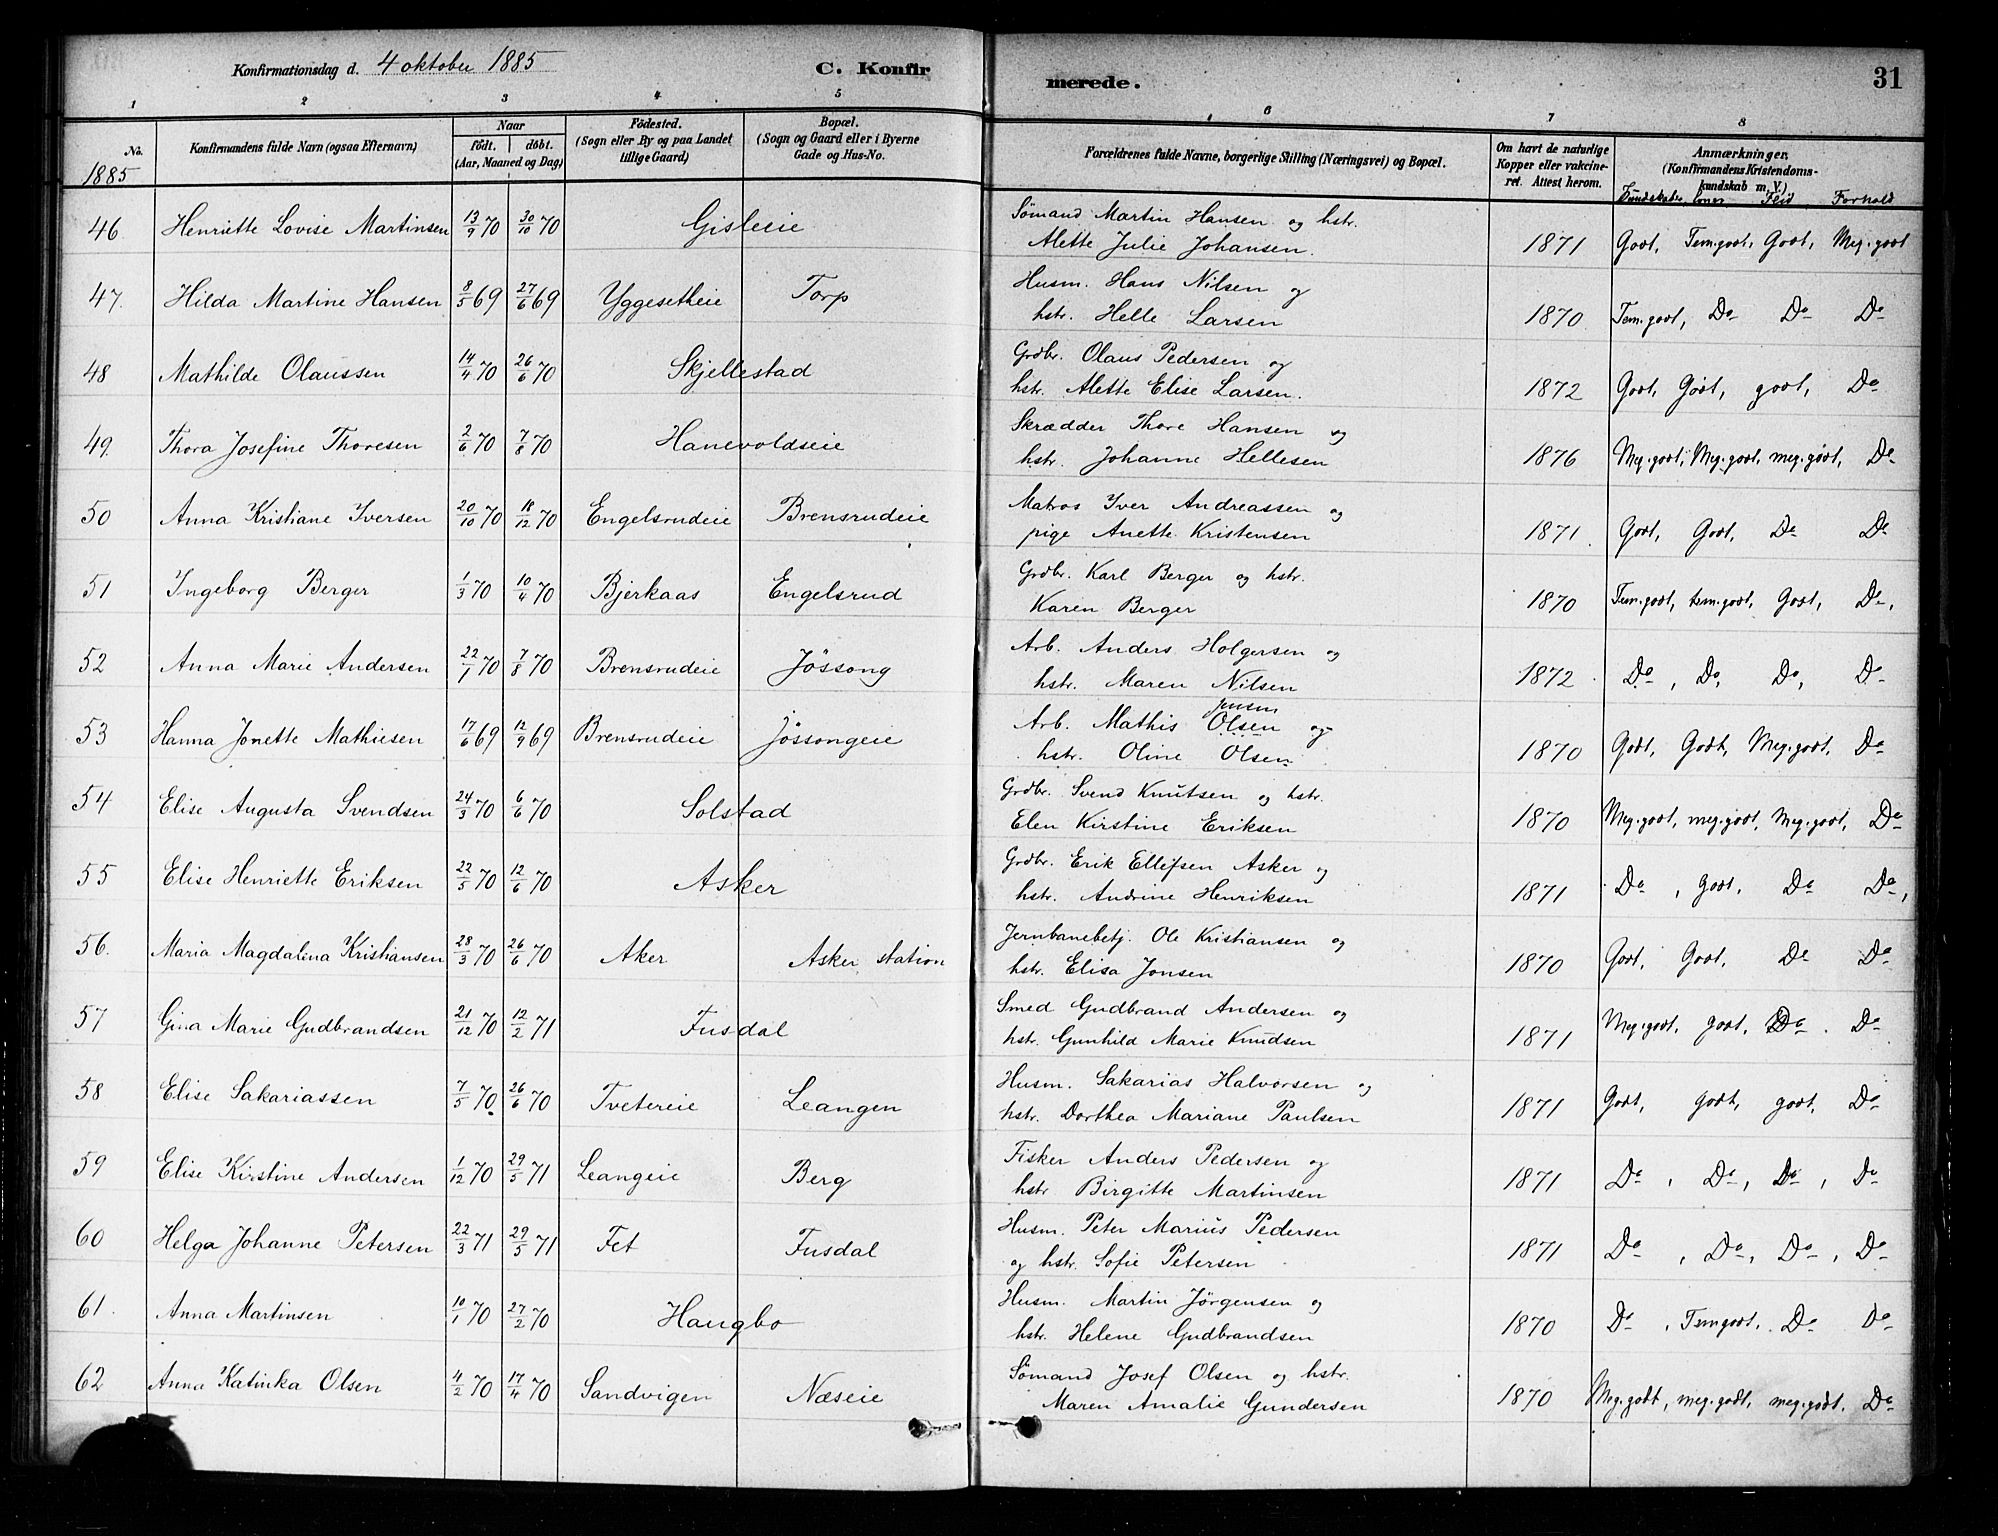 Konfirmationsdag d. 4 oktober 1885 C. Konfirmerede. 31
1 2 3 4 5 6 7 8
No. Konfirmandens fulde Navn (ogsaa Efternavn) Naar født. døbt. (Aar, Maaned og Dag) Fødested. (Sogn eller By og paa Landet tillige Gaard) Bopæl. (Sogn og Gaard eller i Byerne Gade og Hus-No. Forældrenes fulde Navne, borgerlige Stilling (Næringsvei) og Bopæl. Om havt de naturlige Kopper eller vakcineret. Attest herom. Anmærkninger. (Konfirmandens Kristendomskundskab m. V.)
1885 Kundskaber Flid Forhold
46. Henriette Lovise Martinsen 13/9 70 30/10 70 Gisleeie Sømand Martin Hansen og hstr.
Alette Julie Johansen. 1871 Godt, Tem.godt, Godt, Meg.godt
47. Hilda Martine Hansen 8/5 69 27/6 69 Yggesetheie Torp Husm. Hans Nilsen og
hstr. Helle Larsen 1870 Tem.godt, Do Do Do
48 Mathilde Olaussen 14/4 70 26/6 70 Skjellestad Grdbr. Olaus Pedersen og
hstr. Alette Elise Larsen. 1872 Godt, Godt, godt, Do
49. Thora Josefine Thoresen 2/6 70 7/8 70 Hanevoldseie Skrædder Thore Hansen og
hstr. Johanne Hellesen 1876 Meg.godt, Meg.godt, meg.godt, Do
50 Anna Kristiane Iversen 20/10 70 18/12 70 Engelsrudeie Brensrudeie Matros Iver Andreassen og
pige Anette Kristensen 1871. Godt, Godt, Do Do
51 Ingeborg Berger 1/3 70 10/4 70 Bjerkaas Engelsrud Grdbr. Karl Berger og hstr.
Karen Berger 1870 Tem.godt, tem.godt, Godt, Do,
52 Anna Marie Andersen 22/1 70 7/8 70 Brensrudeie Jøssong Arb. Anders Holgersen og
hstr. Maren Nilsen 1872 Do, Do, Do, Do
53 Hanna Jonette Mathiesen 17/6 69 12/9 69 Brensrudeie Jøssongeie Arb. Mathis Olsen og
hstr. Oline Olsen 1870 Godt, Godt, Meg.godt, Do
54 Elise Augusta Svendsen 24/3 70 6/6 70 Solstad Grdbr. Svend Knutsen og hstr.
Elen Kirstine Eriksen 1870 Meg.godt, meg.godt, Meg.godt, Do
55 Elise Henriette Eriksen 22/5 70 12/6 70 Asker Grdbr. Erik Ellefsen Asker og
hstr. Andrine Henriksen 1871 Do, godt, Do Do,
56. Maria Magdalina Kristiansen 28/3 70 26/6 70 Aker Asker station Jernbanebetj. Ole Kristiansen og
hstr. Elisa Jonsen 1870 Godt, Godt, Do Do
57 Gina Marie Gudbrandsen 21/12 70 12/2 71 Fusdal Smed Gudbrand Andersen og
hstr. Gunhild Marie Knudsen 1871 Meg.godt, godt, Do. Do
58 Elise Sakariassen 7/5 70 26/6 70 Tvetereie Leangen Husm. Sakarias Halvorsen og
hstr. Dorthea Mariane Paulsen 1871 Godt, godt, godt, Do
59 Elise Kirstine Andersen 1/12 70 29/5 71 Leangeie Berg Fisker Anders Pedersen og
hstr Birgitte Martinsen 1871 Do, Do, Do, Do
60 Helga Johanne Petersen 22/3 71 29/5 71 Fet Fusdal Husm. Peter Marius Pedersen
og hstr. Sofie Petersen 1871 Do, Do, Do, Do
61. Anna Martinsen 10/1 70 27/2 70 Haugbo Husm. Martin Jørgensen og
hstr. Helene Gudbrandsen 1870 Do, Temgodt, Do Do
62 Anna Katinka Olsen 4/2 70 17/4 70 Sandvigen Næseie Sømand Josef Olsen og hstr.
Maren Amalie Gundersen 1870 Meg.godt, meg.godt, meg.godt. Do